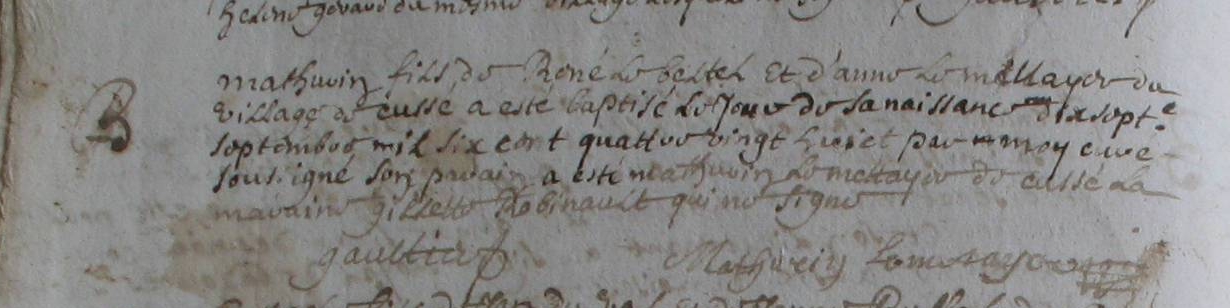 helene gerard du mesme village
B
mathurin fils de René Le bertel Et d'anne Le mettayer du
village de cussé a esté baptisé Le Jour de sa naissance dix sept.e
septembre mil six cent quattre vingt huict par moy curé
soussigné son parain a esté mathurin Le mettayer de cussé La
maraine gillette Robinault qui ne signe
gaultier
Mathurin Lemetayer